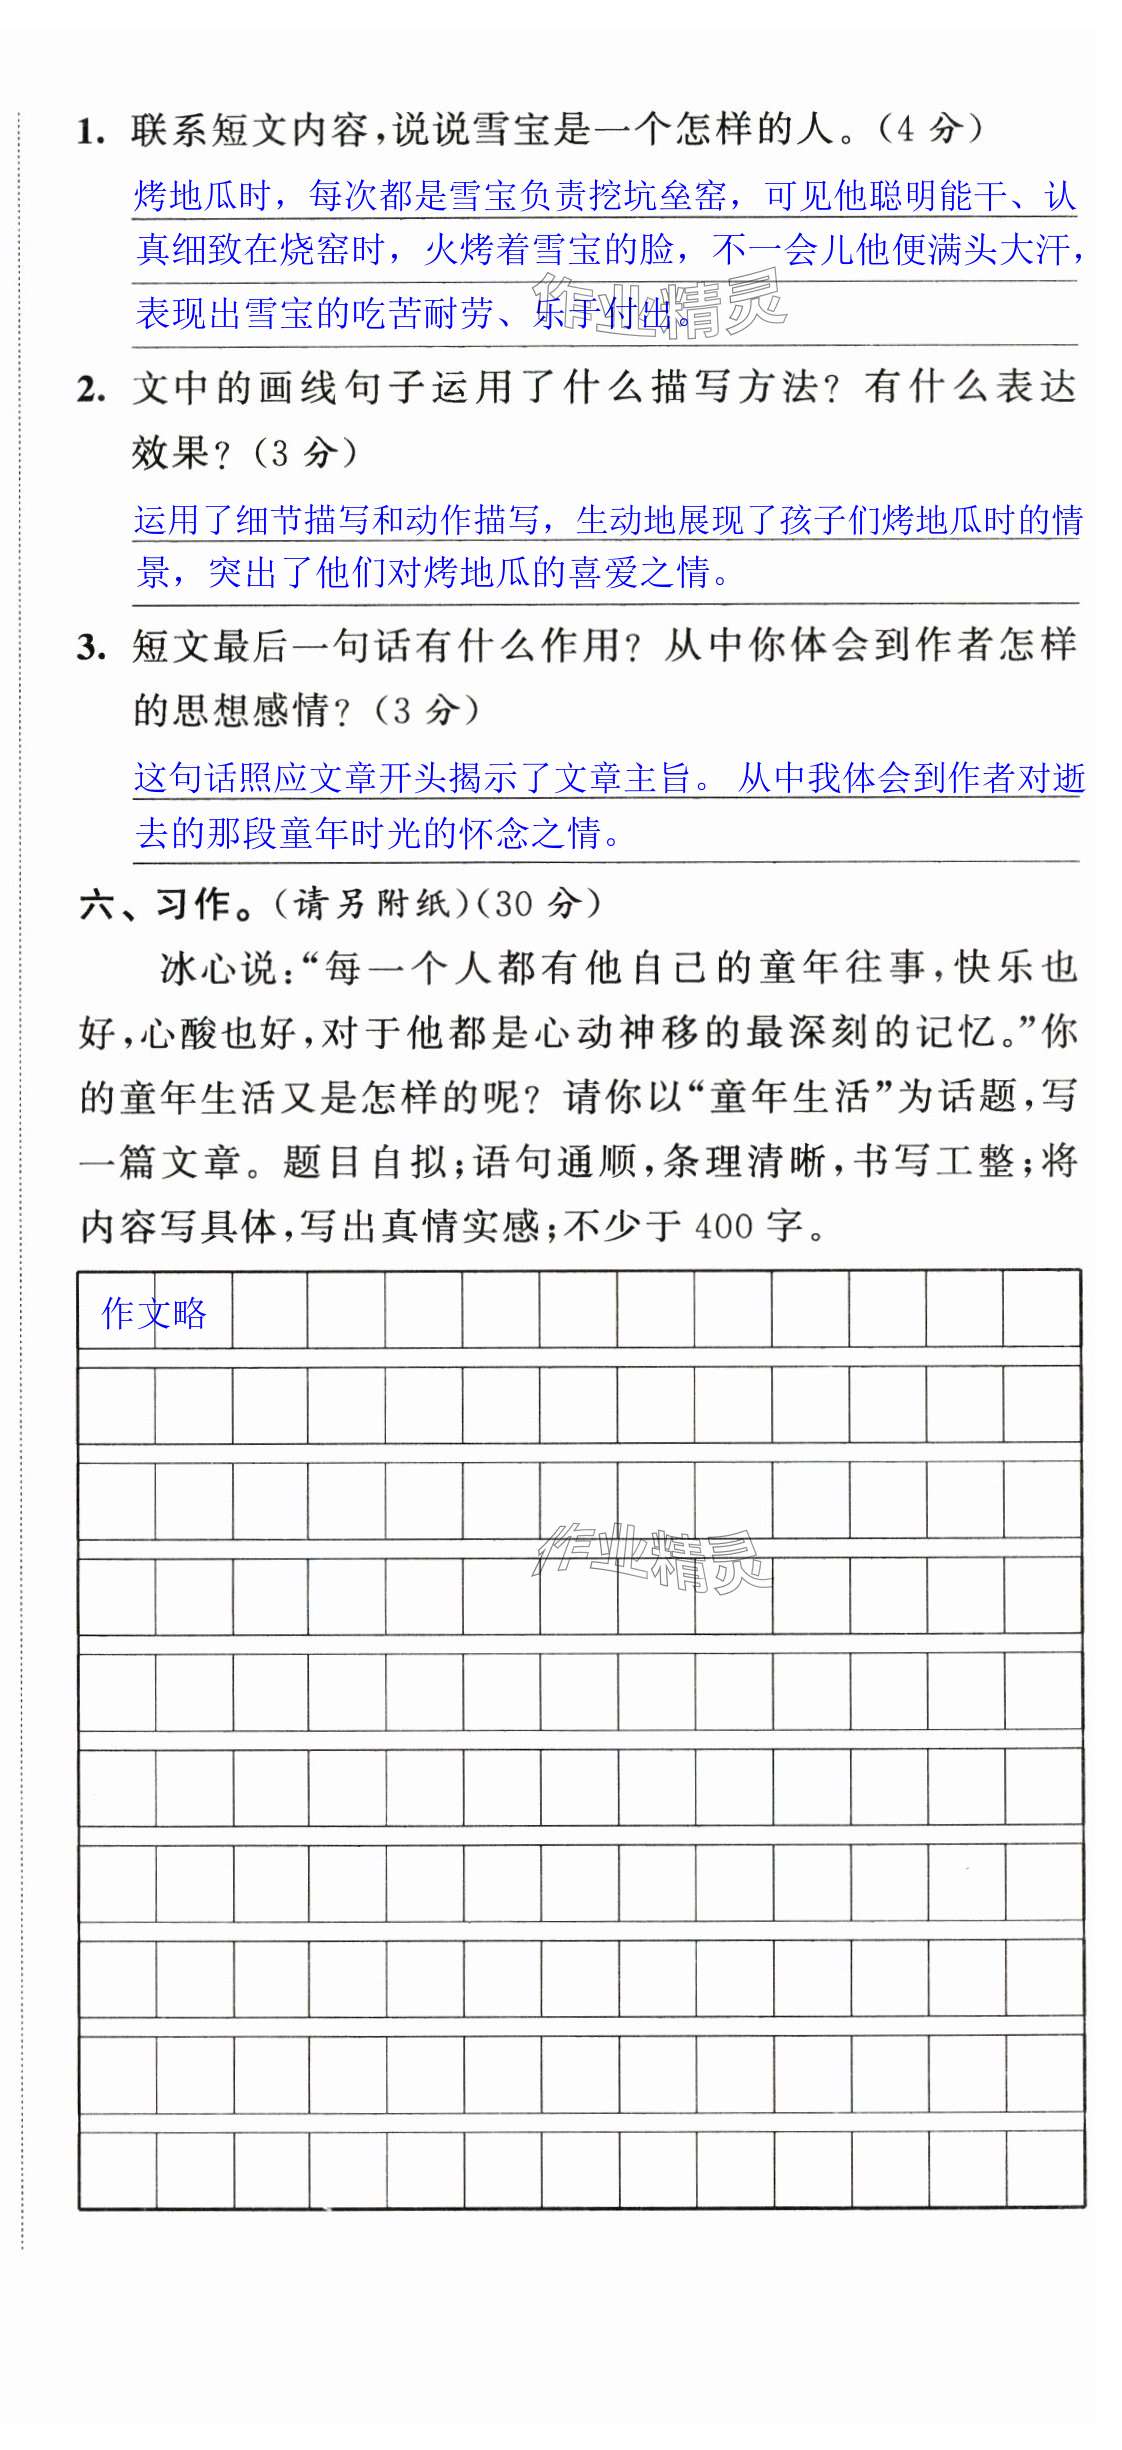 1. 联系短文内容，说说雪宝是一个怎样的人。（4 分）
烤地瓜时，每次都是雪宝负责挖坑垒窑，可见他聪明能干、认
真细致在烧窑时，火烤着雪宝的脸，不一会儿他便满头大汗，
表现出雪宝的吃苦耐劳、乐于付出。
作业精灵
2. 文中的画线句子运用了什么描写方法？有什么表达
效果？（3 分）
运用了细节描写和动作描写，生动地展现了孩子们烤地瓜时的情
景，突出了他们对烤地瓜的喜爱之情。
3. 短文最后一句话有什么作用？从中你体会到作者怎样
的思想感情？（3 分）
这句话照应文章开头揭示了文章主旨。 从中我体会到作者对逝
去的那段童年时光的怀念之情。
六、习作。（请另附纸）（30 分）
冰心说：“每一个人都有他自己的童年往事，快乐也
好，心酸也好，对于他都是心动神移的最深刻的记忆。”你
的童年生活又是怎样的呢？请你以“童年生活”为话题，写
一篇文章。题目自拟；语句通顺，条理清晰，书写工整；将
内容写具体，写出真情实感；不少于 400 字。
作文略
作业精灵